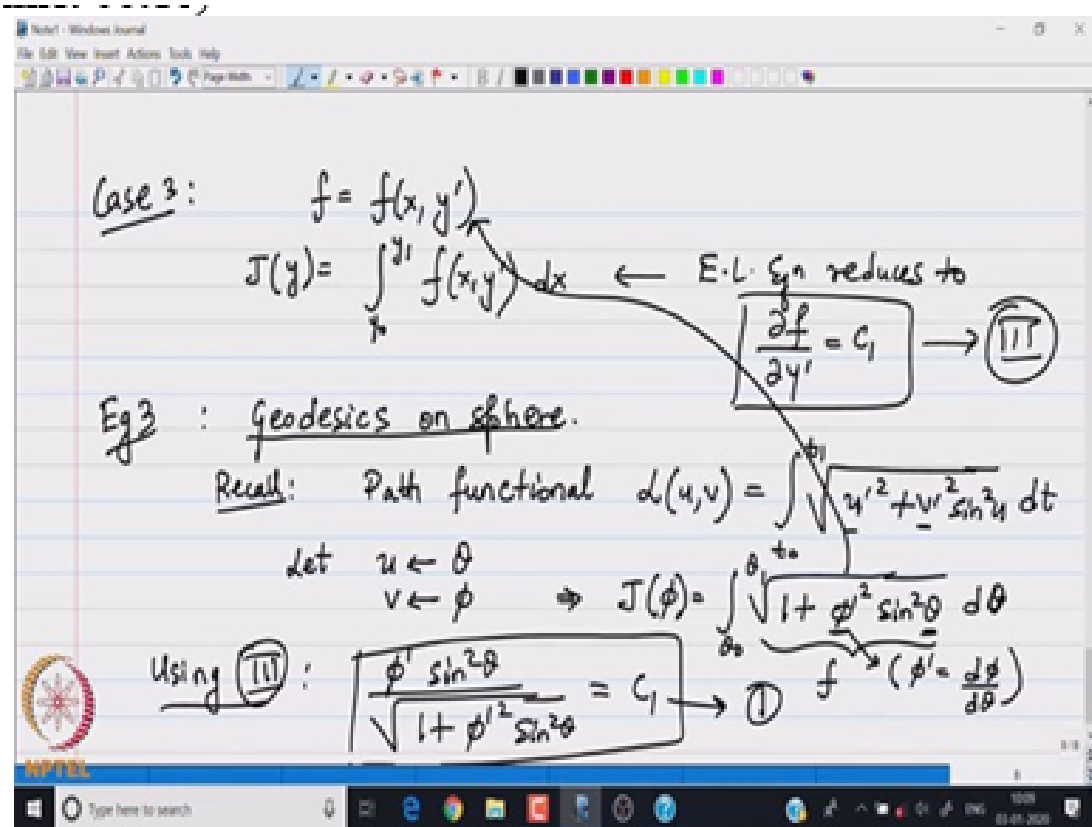 Note1 - Windows Journal
File Edit View Insert Actions Tools Help
Page Width
B I
Case 3: f = f(x, y')
J(y) = ∫ f(x, y') dx ← E.L. Eqn reduces to
∂f/∂y' = C₁ → III
Eg 3 : Geodesics on sphere.
Recall: Path functional L(u,v) = ∫_{t₀}^{t₁} √(u'² + v'² sin²u) dt
Let u ← θ
v ← φ ⇒ J(φ) = ∫_{θ₀}^{θ₁} √(1 + φ'² sin²θ) dθ
f (φ' = dφ/dθ)
Using III : φ' sin²θ / √(1 + φ'² sin²θ) = C₁ → ①
NPTEL
8/8
8
Type here to search
ENG
10:09
03-01-2020